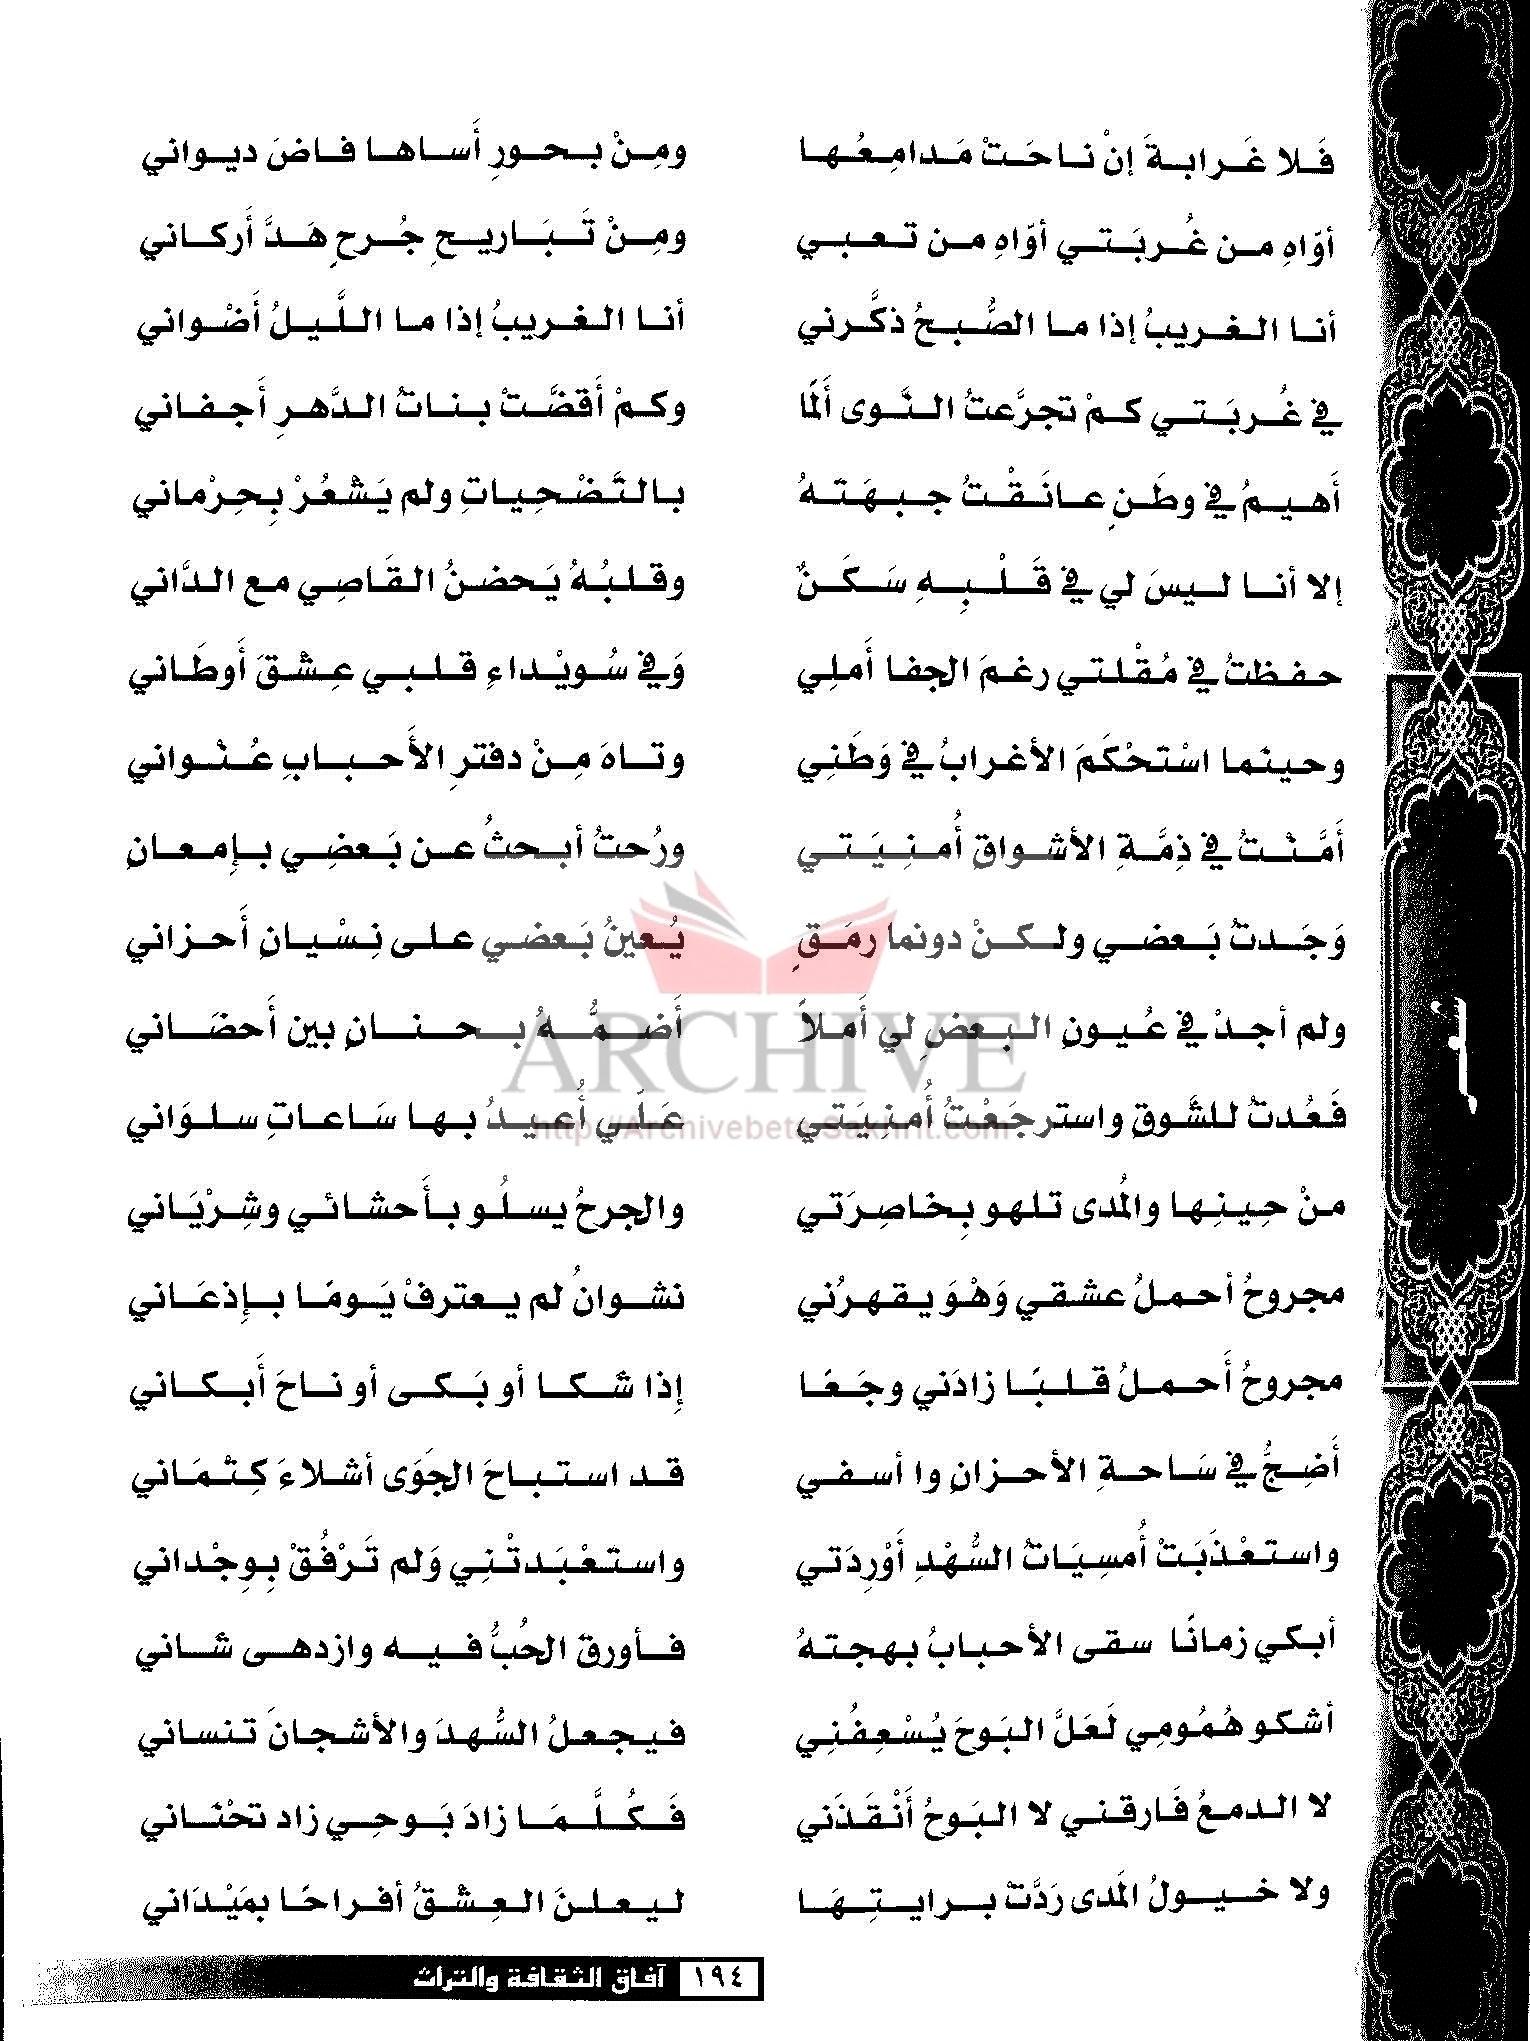 فَلا غَرابةَ إنْ ناحَتْ مَدامِعُها ومِنْ بحورِ أَساها فاضَ ديواني
أوّاهِ من غُربَتي أوّاهِ من تعبي ومِنْ تَبَاريحِ جُرحٍ هَدَّ أَركاني
أنا الغريبُ إذا ما الصُّبحُ ذكَّرني أنا الغريبُ إذا ما اللَّيلُ أَضْواني
في غُربَتي كمْ تجرَّعتُ النَّوى أَلمًا وكمْ أَقضَّتْ بناتُ الدَّهرِ أَجفاني
أَهيمُ في وطَنٍ عانَقْتُ جبهَتهُ بالتَّضْحِياتِ ولم يَشْعُرْ بِحِرْماني
إلا أنا ليسَ لي في قَلْبِهِ سَكَنٌ وقلبُهُ يَحضنُ القَاصِي مع الدَّاني
حفظتُ في مُقْلتي رغمَ الجفا أَملِي وَفي سُويْداءِ قلبي عِشْقَ أَوطَاني
وحينَما اسْتحْكَمَ الأغرابُ في وَطَنِي وتاهَ مِنْ دفترِ الأَحبابِ عُنْواني
أَمَّنْتُ في ذِمَّةِ الأشواقِ أُمنِيَتي ورُحتُ أبحثُ عن بَعضِي بإِمعانِ
وَجَدتُ بَعضي ولكنْ دونما رمَقٍ يُعينُ بَعضي على نِسْيانِ أَحزاني
ولم أجدْ في عُيونِ البعضِ لي أَملاً أَضمُّهُ بحنانٍ بين أَحضَاني
فَعُدتُ للشَّوقِ واسترجَعْتُ أُمنِيَتي عَلّي أُعيدُ بها سَاعاتِ سلوَاني
منْ حِينِها والمُدى تلهو بِخاصِرَتي والجرحُ يسلُو بأَحشائي وشِرْيَاني
مجروحُ أحملُ عشقي وَهْوَ يقهرُني نشوانُ لم يعترفْ يَومًا بإِذعَاني
مجروحُ أَحملُ قلبًا زادَني وجَعَا إِذا شكا أو بَكى أو ناحَ أَبكاني
أَضِجُّ في سَاحةِ الأحزانِ وا أسفي قد استباحَ الجَوَى أشلاءَ كِتْمَاني
واستعْذَبَتْ أُمسِيَاتُ السُّهْدِ أَوْرِدَتي واستعْبَدتْنِي وَلم تَرْفُقْ بِوِجْداني
أبكي زمانًا سقى الأحبابُ بهجتهُ فأورق الحُبُّ فيه وازدهى شاني
أشكو هُمُومِي لَعَلَّ البَوحَ يُسْعِفُنِي فيجعلُ السُّهدَ والأشجانَ تنساني
لا الدمعُ فَارقني لا البَوحُ أَنْقَذَني فَكُلَّمَا زادَ بَوحِي زاد تحْنَاني
ولا خيولُ المَدى رَدَّتْ برايتِهَا ليعلنَ العِشْقُ أفراحًا بمَيْدَاني
شعر
١٩٤ آفاق الثقافة والتراث
ARCHIVE
http://Archivebeta.Sakhrit.com